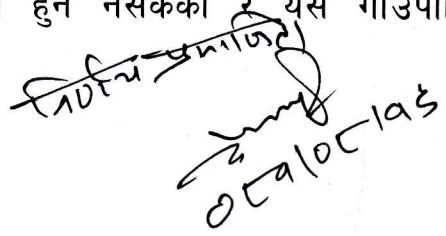 हुन नसकेको र यस गाउँपा
निर्णय प्रमाणित
०८१/०८/१३